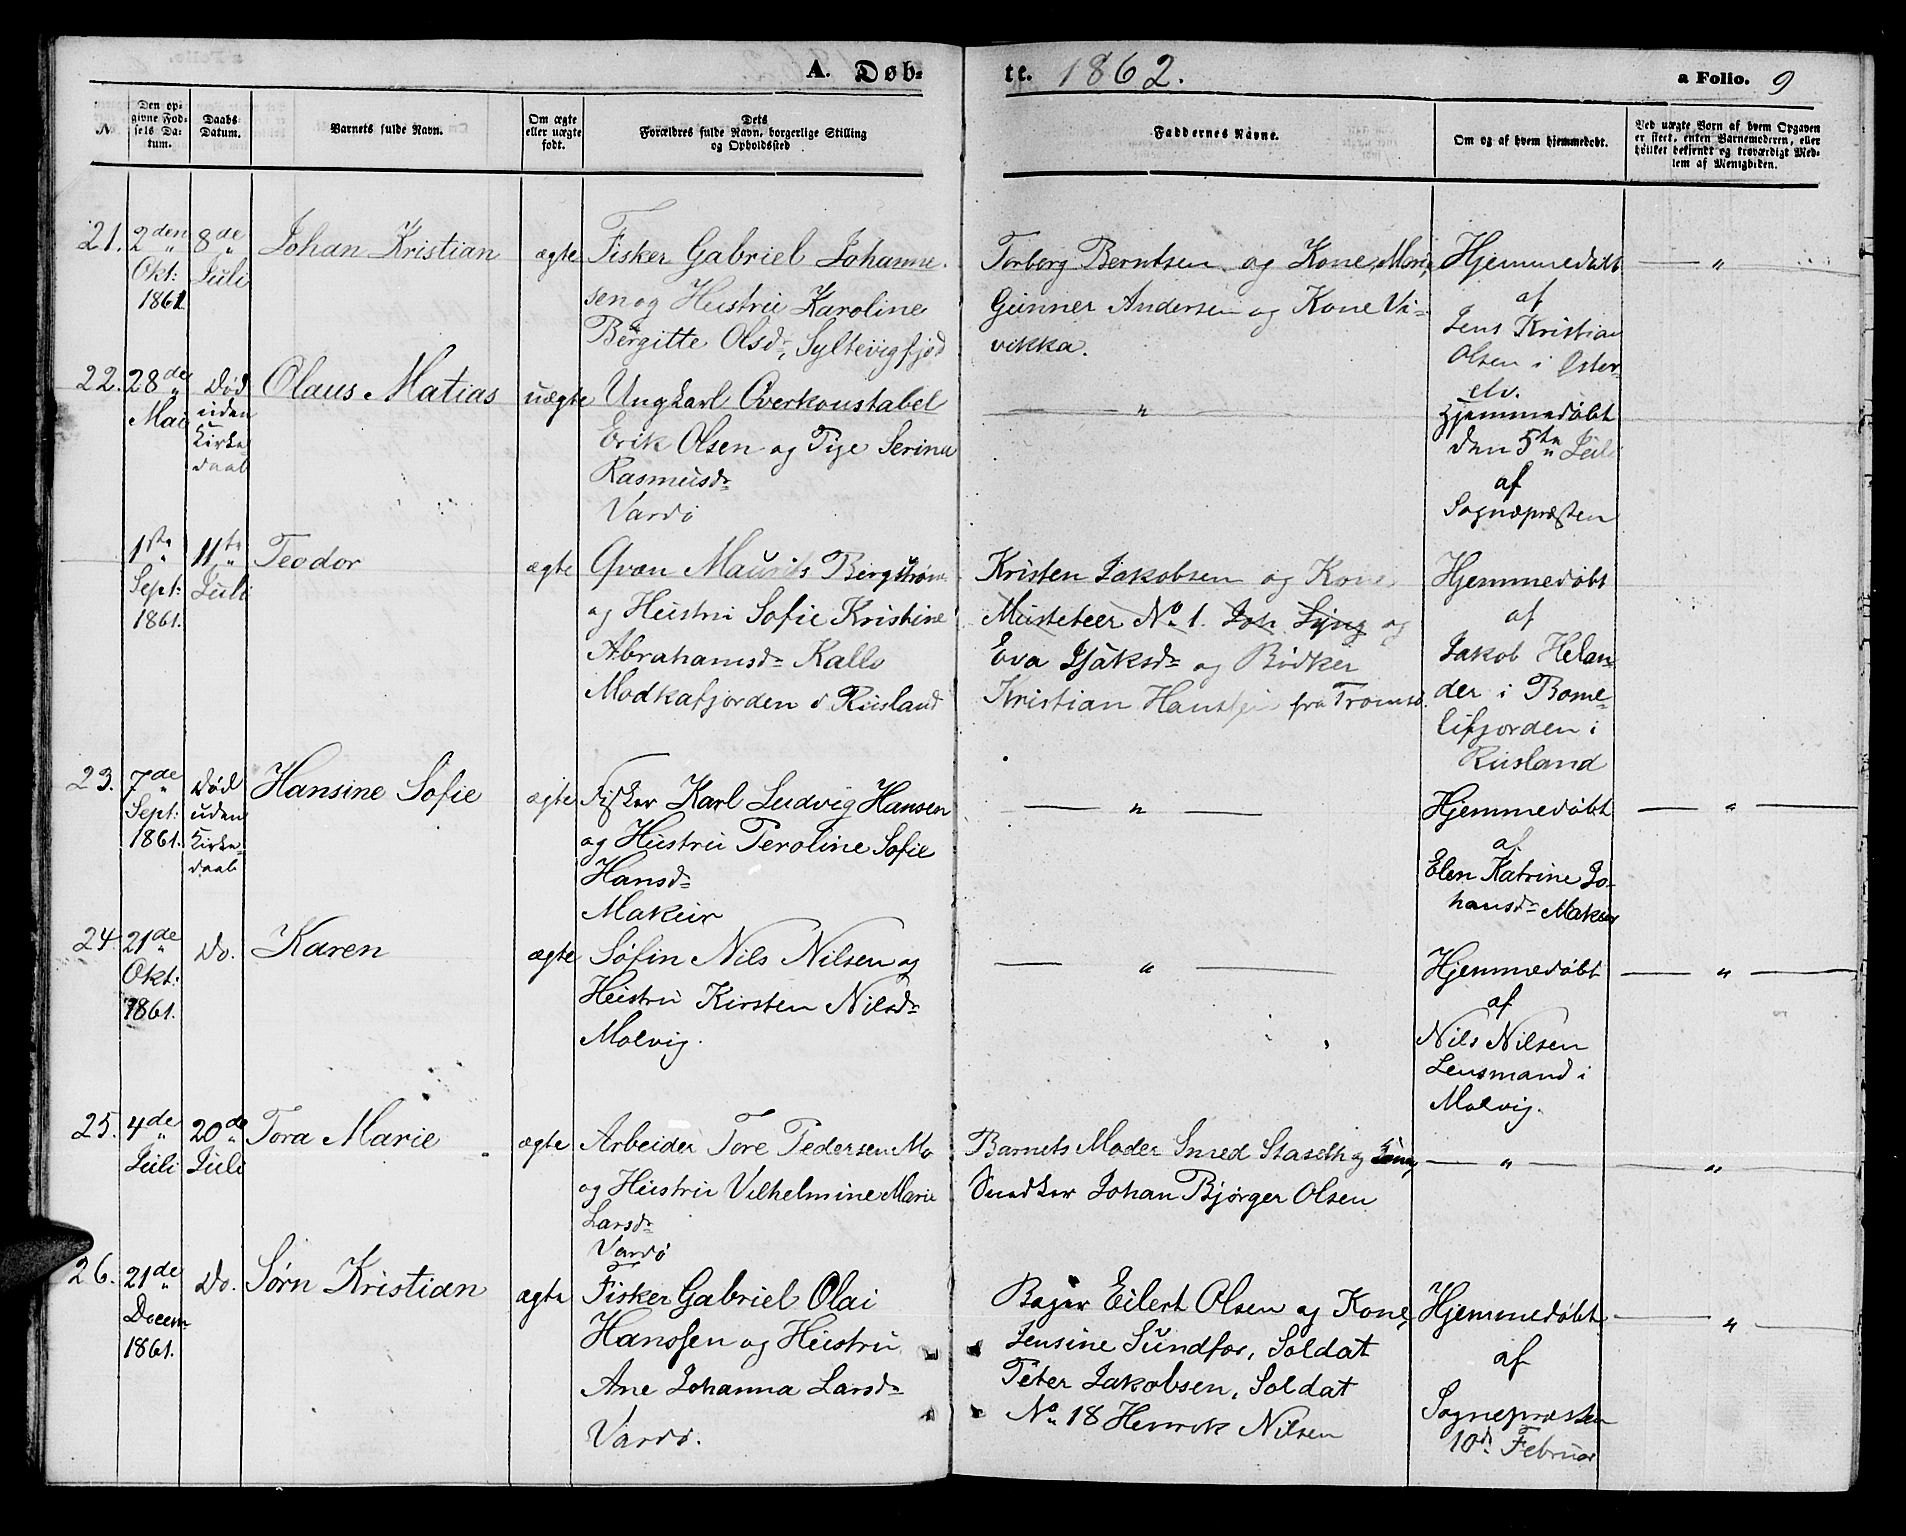 A. Døb-
te. 1862.
a Folio. 9
N.
Den op-
givne Fød-
sels Da-
tum.
Daabs-
Datum.
Barnets fulde Navn.
Om ægte
eller uægte
født.
Dets
Forældres fulde Navn, borgerlige Stilling
og Opholdssted
Faddernes Navne.
Om og af hvem hjemmedøbt.
Ved uægte Børn af hvem Opgaven
er skeet, enten Barnemoderen, eller
hvilket bekjendt og troværdigt Med-
lem af Menigheden.
21.
2den
Okt:
1861
8de
Juli
Johan Kristian
ægte
Fisker Gabriel Johanne-
sen og Hustru Karoline
Bergitte Olsdr, Syltevigfjord
Torberg Berntsen og Kone, Mari,
Gunner Andersen og Kone Vi-
vikka.
Hjemmedøbt
af
Jens Kristian
Olsen i Øster-
elv.
— " —
22.
28de
Mai
Død
uden
Kirke-
daab
Olaus Matias
uægte
Ungkarl Overkonstabel
Erik Olsen og Pige Serina
Rasmusdr
Vardø
— " —
Hjemmedøbt
den 5te Juli
af
Sognepræsten
1ste
Sept:
1861.
11te
Juli
Teodor
ægte
Qvæn Maurits Bergstrøm
og Hustru Sofie Kristine
Abrahamsdr Kallo
Modkafjorden i Rusland
Kristen Jakobsen og Kone
Musketeer No 1. Joh. Lyng og
Eva Isaksdr og Bødker
Kristian Hansen fra Tromsø.
Hjemmedøbt
af
Jakob Helan-
der i Bome-
lifjorden i
Rusland
23.
7de
Sept:
1861.
Død
uden
Kirke-
daab
Hansine Sofie
ægte
Fisker Karl Ludvig Hansen
og Hustru Peroline Sofie
Hansdr
Makur
— " —
Hjemmedøbt
af
Elen Katrine Jo-
hansdr Makur
— " —
24
21de
Okt:
1861.
Do.
Karen
ægte
Søfin Nils Nilsen og
Hustru Kirsten Nilsdr
Molvig.
— " —
Hjemmedøbt
af
Nils Nilsen
Lensmand i
Molvig.
— " —
25.
4de
Juli
20de
Juli
Tora Marie
ægte
Arbeider Tore Pedersen Mo
og Hustru Vilhelmine Marie
Larsdr
Vardø
Barnets Moder Smed Staseth og
Snedker Johan Bjørger Olsen
— " —
"
26.
21de
Decem
1861.
Do.
Sørn Kristian
ægte
Fisker Gabriel Olai
Hanssen og Hustru
Ane Johanna Larsdr
Vardø.
Bager Eilert Olsen og Kone,
Jensine Sundfør, Soldat
Peter Jakobsen, Soldat
No 18 Henrik Nilsen
Hjemmedøbt
af
Sognepræsten
10de Februar
— " —